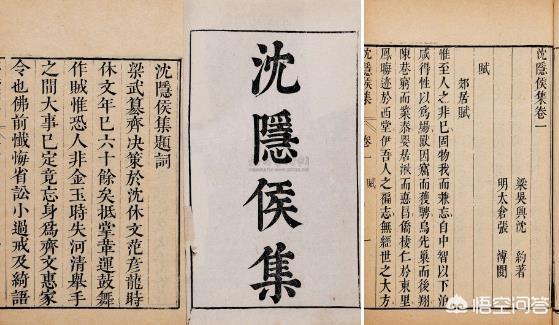 沈隱侯集題詞
梁武篡齊決策於沈休文范彥龍時
休文年已六十餘矣抵掌革運鼓舞
作賊惟恐人非金玉時失河清舉手
之間大事已定竟忘身爲齊文惠家
令也佛前懺悔省訟小過戒及綺語
沈隱侯集
沈隱侯集卷一
梁吳興沈約著
明太倉張溥閱
賦
郊居賦
惟至人之非已固物我而兼忘自中智以下洎
咸得性以爲場獸因窟而獲騁鳥先巢而後翔
陳巷窮而業泰嬰居湫而德昌僑棲仁於東里
鳳晦迹於西堂伊吾人之褊志無經世之大方
沈隱侯集 卷一 賦
悟空问答